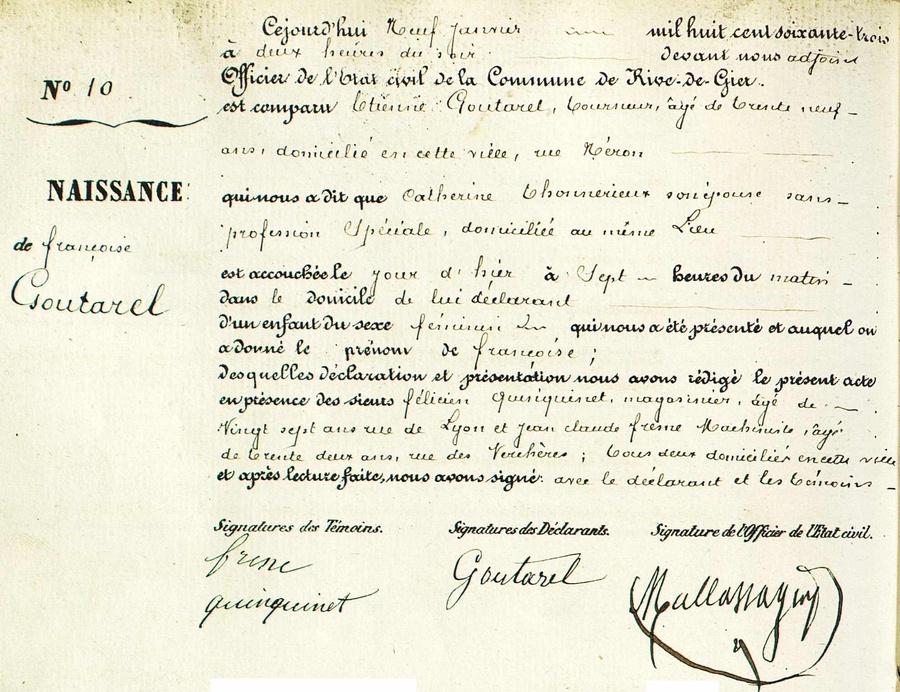 Cejourd'hui Neuf Janvier mil huit cent soixante-trois
à deux heures du soir devant nous adjoint
Officier de l'Etat civil de la Commune de Rive-de-Gier.
Nº 10
est comparu Etienne Goutarel, tourneur, âgé de trente neuf
ans, domicilié en cette ville, rue Néron
NAISSANCE
qui nous a dit que Catherine Thonnerieux son épouse sans
profession Spéciale, domiciliée au même Lieu
de françoise
Goutarel
est accouchée le jour d'hier à Sept heures du matin
dans le domicile de lui déclarant
d'un enfant du sexe féminin qui nous a été présenté et auquel on
a donné le prénom de françoise ;
desquelles déclaration et présentation nous avons rédigé le présent acte
en présence des sieurs félicien Quinquinet, magasinier, âgé de
Vingt sept ans rue de Lyon et jean claude fresne Machiniste, âgé
de trente deux ans, rue des Verchères ; tous deux domiciliés en cette ville
et après lecture faite, nous avons signé avec le déclarant et les témoins
Signatures des Témoins. Signatures des Déclarants. Signature de l'Officier de l'Etat civil.
Goutarel
quinquinet